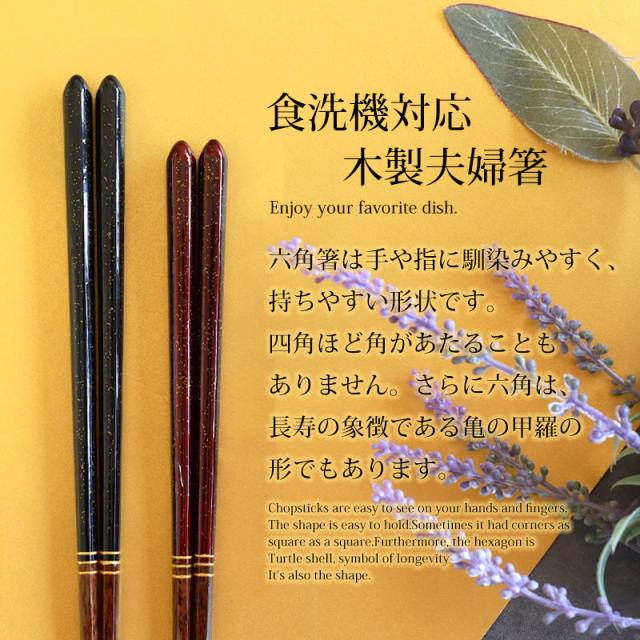 食洗機対応
木製夫婦箸
Enjoy your favorite dish.
六角箸は手や指に馴染みやすく、
持ちやすい形状です。
四角ほど角があたることも
ありません。さらに六角は、
長寿の象徴である亀の甲羅の
形でもあります。
Chopsticks are easy to see on your hands and fingers.
The shape is easy to hold.Sometimes it had corners as
square as a square.Furthermore, the hexagon is
Turtle shell, symbol of longevity
It's also the shape.